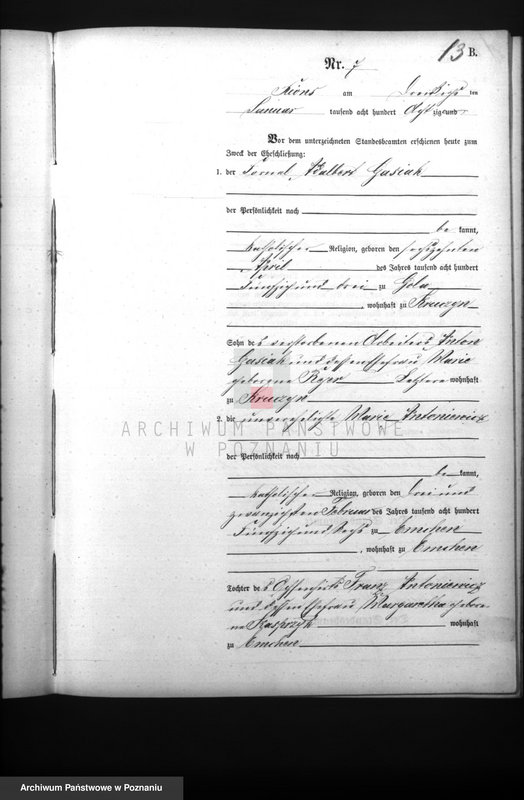 13 B.
Nr. 7
Xions am dreißigs ten
Januar tausend acht hundert Achtzig und
Vor dem unterzeichneten Standesbeamten erschienen heute zum
Zweck der Eheschließung:
1. der Fornal Adalbert Gasiak
der Persönlichkeit nach
be kannt,
katholischer Religion, geboren den sechszehnten
April des Jahres tausend acht hundert
Fünfzig und drei zu Gola
, wohnhaft zu Kruczyn
Sohn des verstorbenen Arbeiters Anton
Gasiak und dessen Ehefrau Marie
geborene Letztere wohnhaft
zu Kruczyn
2. die unverehelichte Marie Antoniewicz
ARCHIWUM PAŃSTWOWE
W POZNANIU
der Persönlichkeit nach
be kannt,
katholischer Religion, geboren den drei und
zwanzigsten Februar des Jahres tausend acht hundert
Fünfzig und sechs zu Emchen
, wohnhaft zu Emchen
Tochter des Franz Antoniewicz
und dessen Ehefrau Margaretha gebore
ne Kasprzyk wohnhaft
zu Emchen
Archiwum Państwowe w Poznaniu